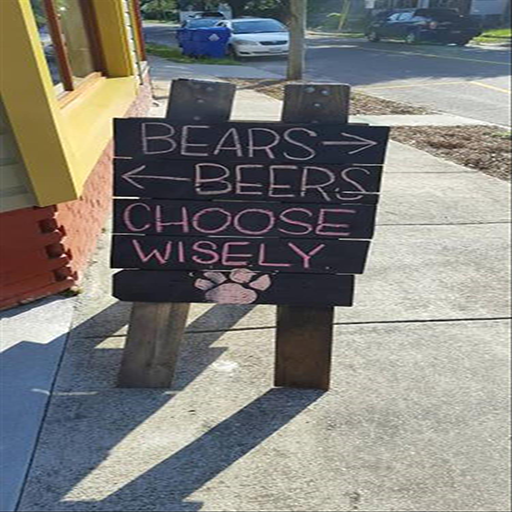 BEARS →
← BEERS
CHOOSE
WISELY.